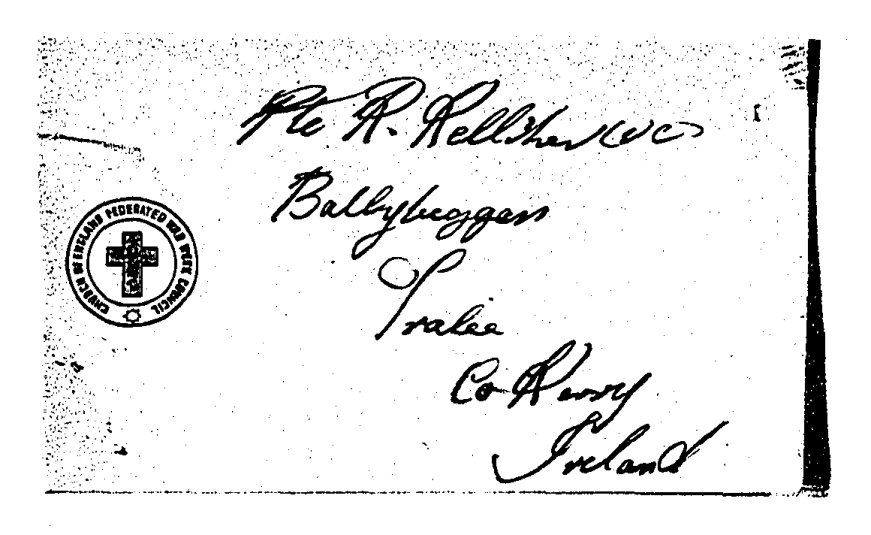 Pte R. Kelliher (VC)
Ballybeggan
Tralee
Co Kerry
Ireland
CHURCH OF ENGLAND FEDERATED WAR WORK COUNCIL